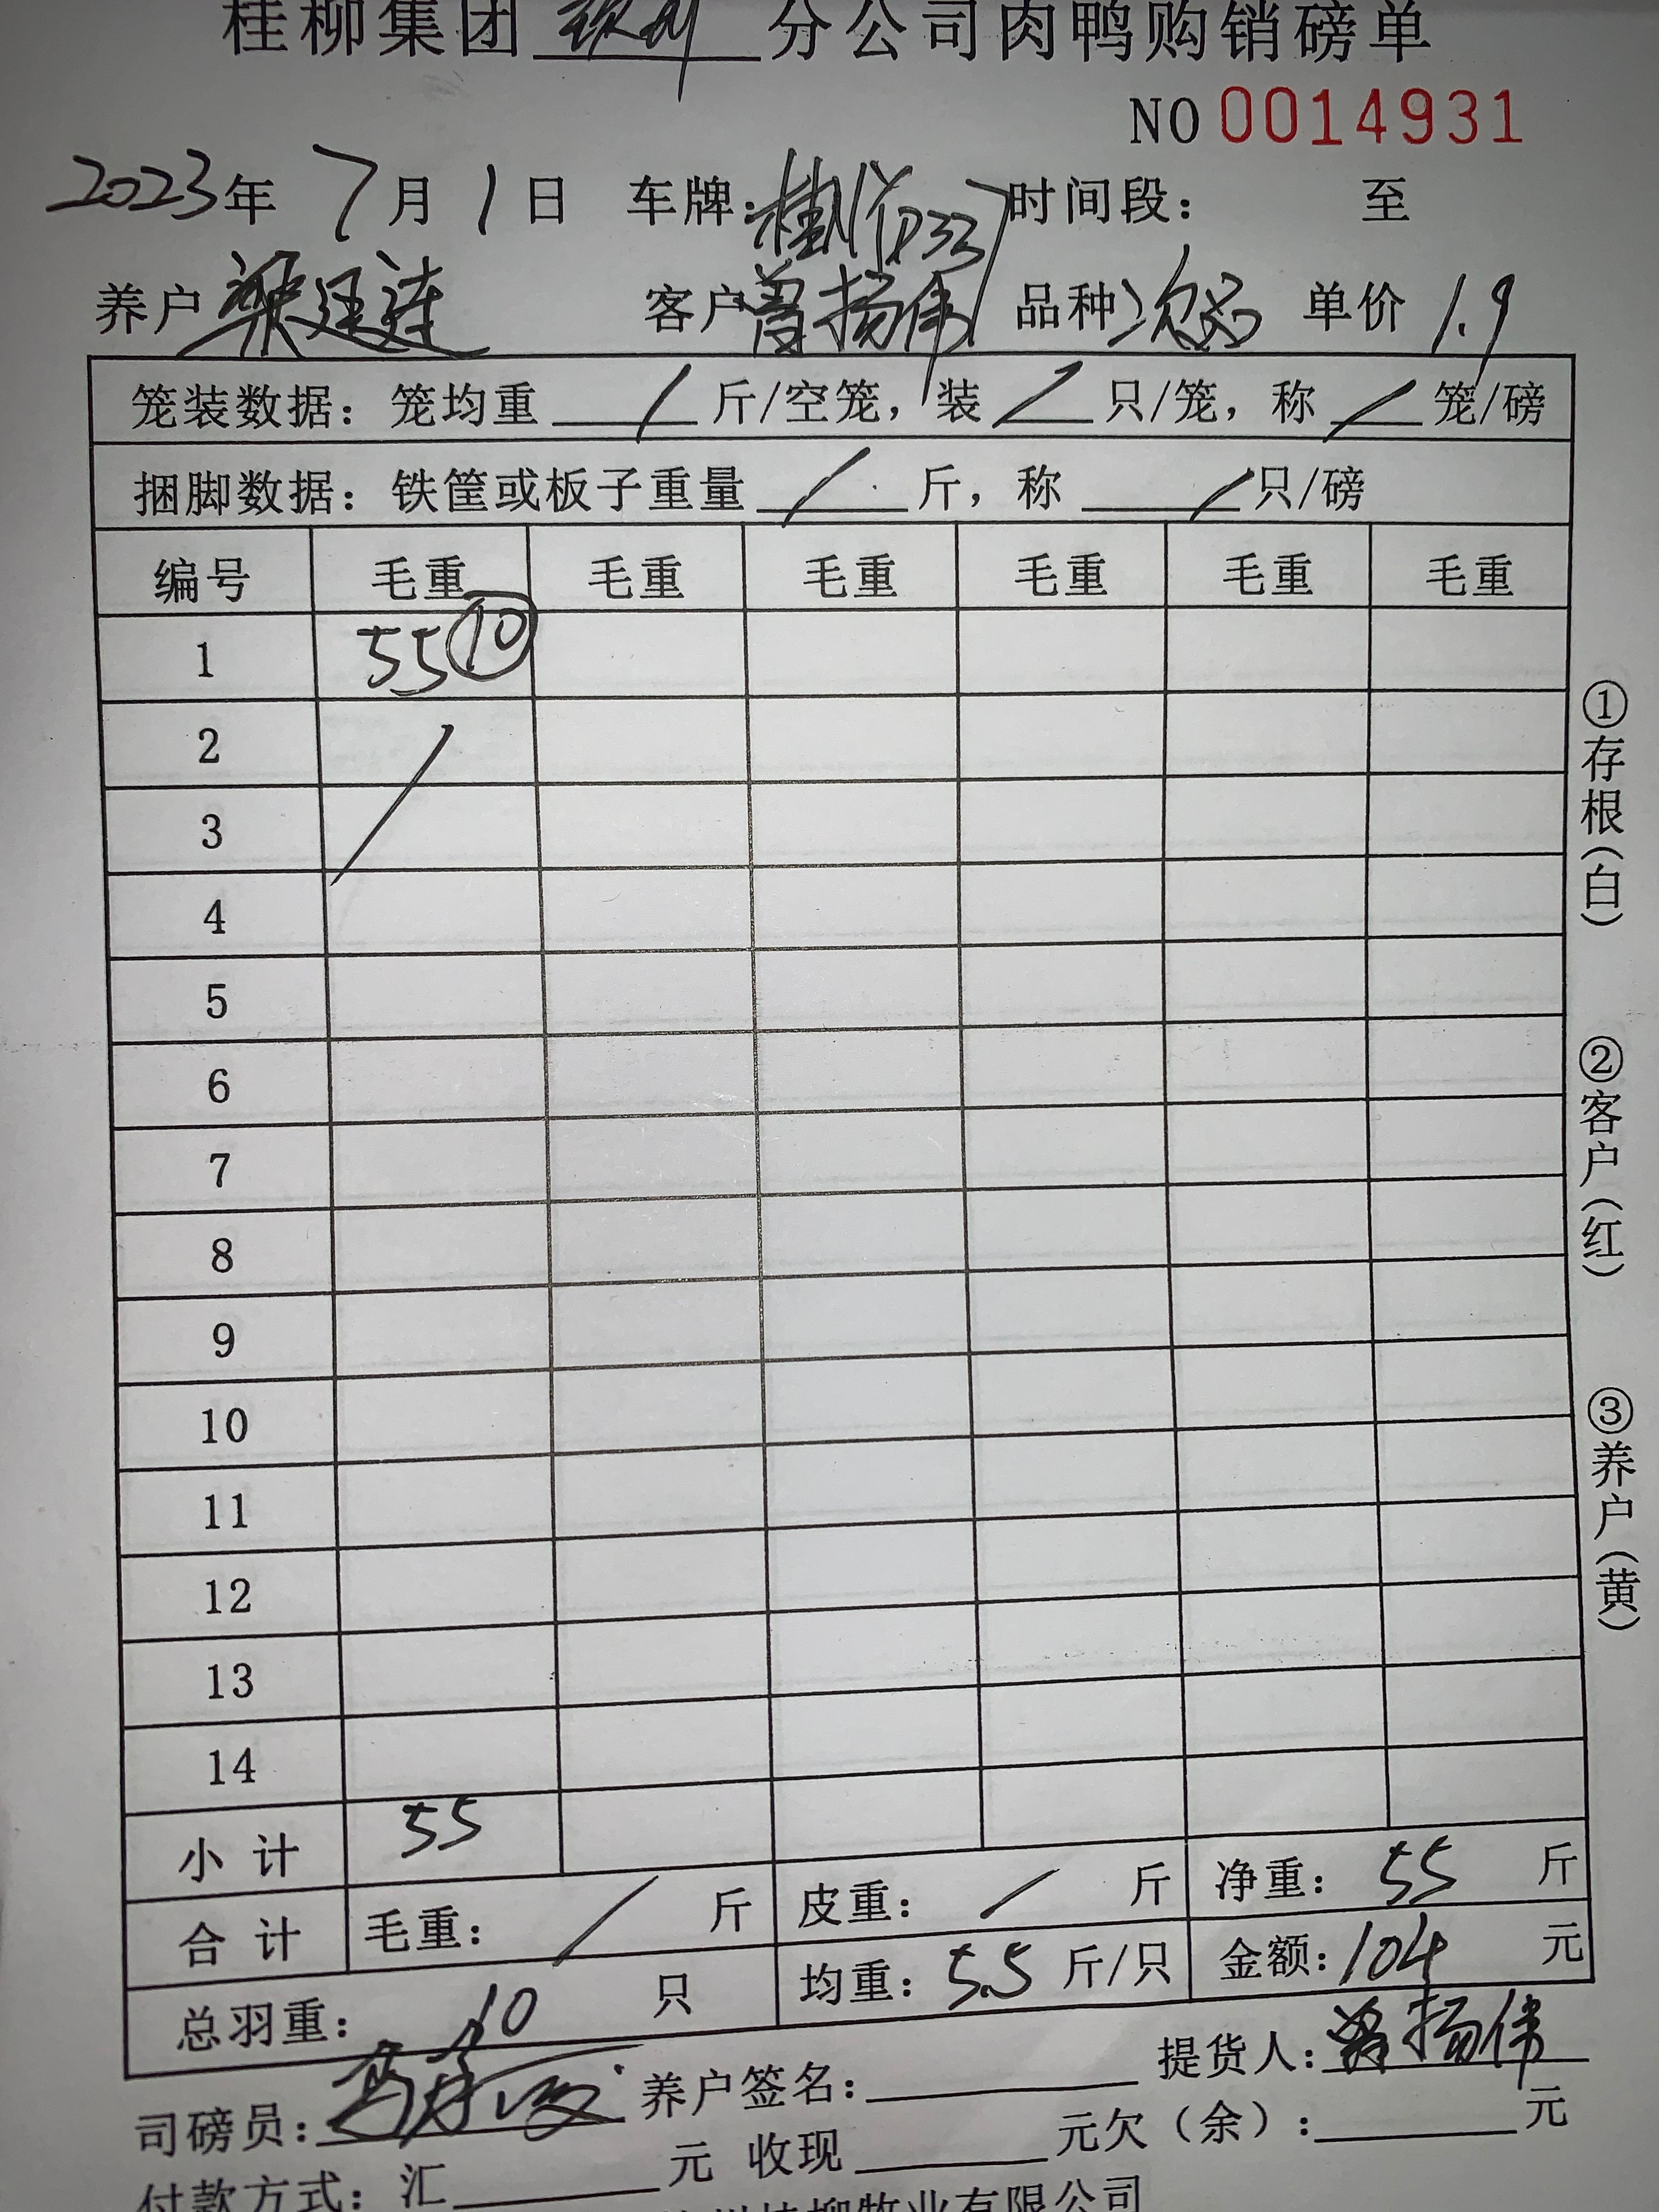 桂柳集团 钦州 分公司肉鸭购销磅单
NO 0014931
2023年 7月 1日 车牌: 时间段: 至
养户 梁廷连 客户 曾扬伟 品种 次品 单价 1.9
笼装数据: 笼均重 / 斤/空笼, 装 / 只/笼, 称 / 笼/磅
捆脚数据: 铁筐或板子重量 / 斤, 称 / 只/磅
编号 毛重 毛重 毛重 毛重 毛重 毛重
1 55 ⑩
2 /
3
4
5
6
7
8
9
10
11
12
13
14
小计 55
合计 毛重: / 斤 皮重: / 斤 净重: 55 斤
总羽重: 10 只 均重: 5.5 斤/只 金额: 104 元
司磅员: 养户签名: 提货人: 曾扬伟
付款方式: 汇 元 收现 元欠(余): 元
桂柳牧业有限公司
①存根(白)
②客户(红)
③养户(黄)